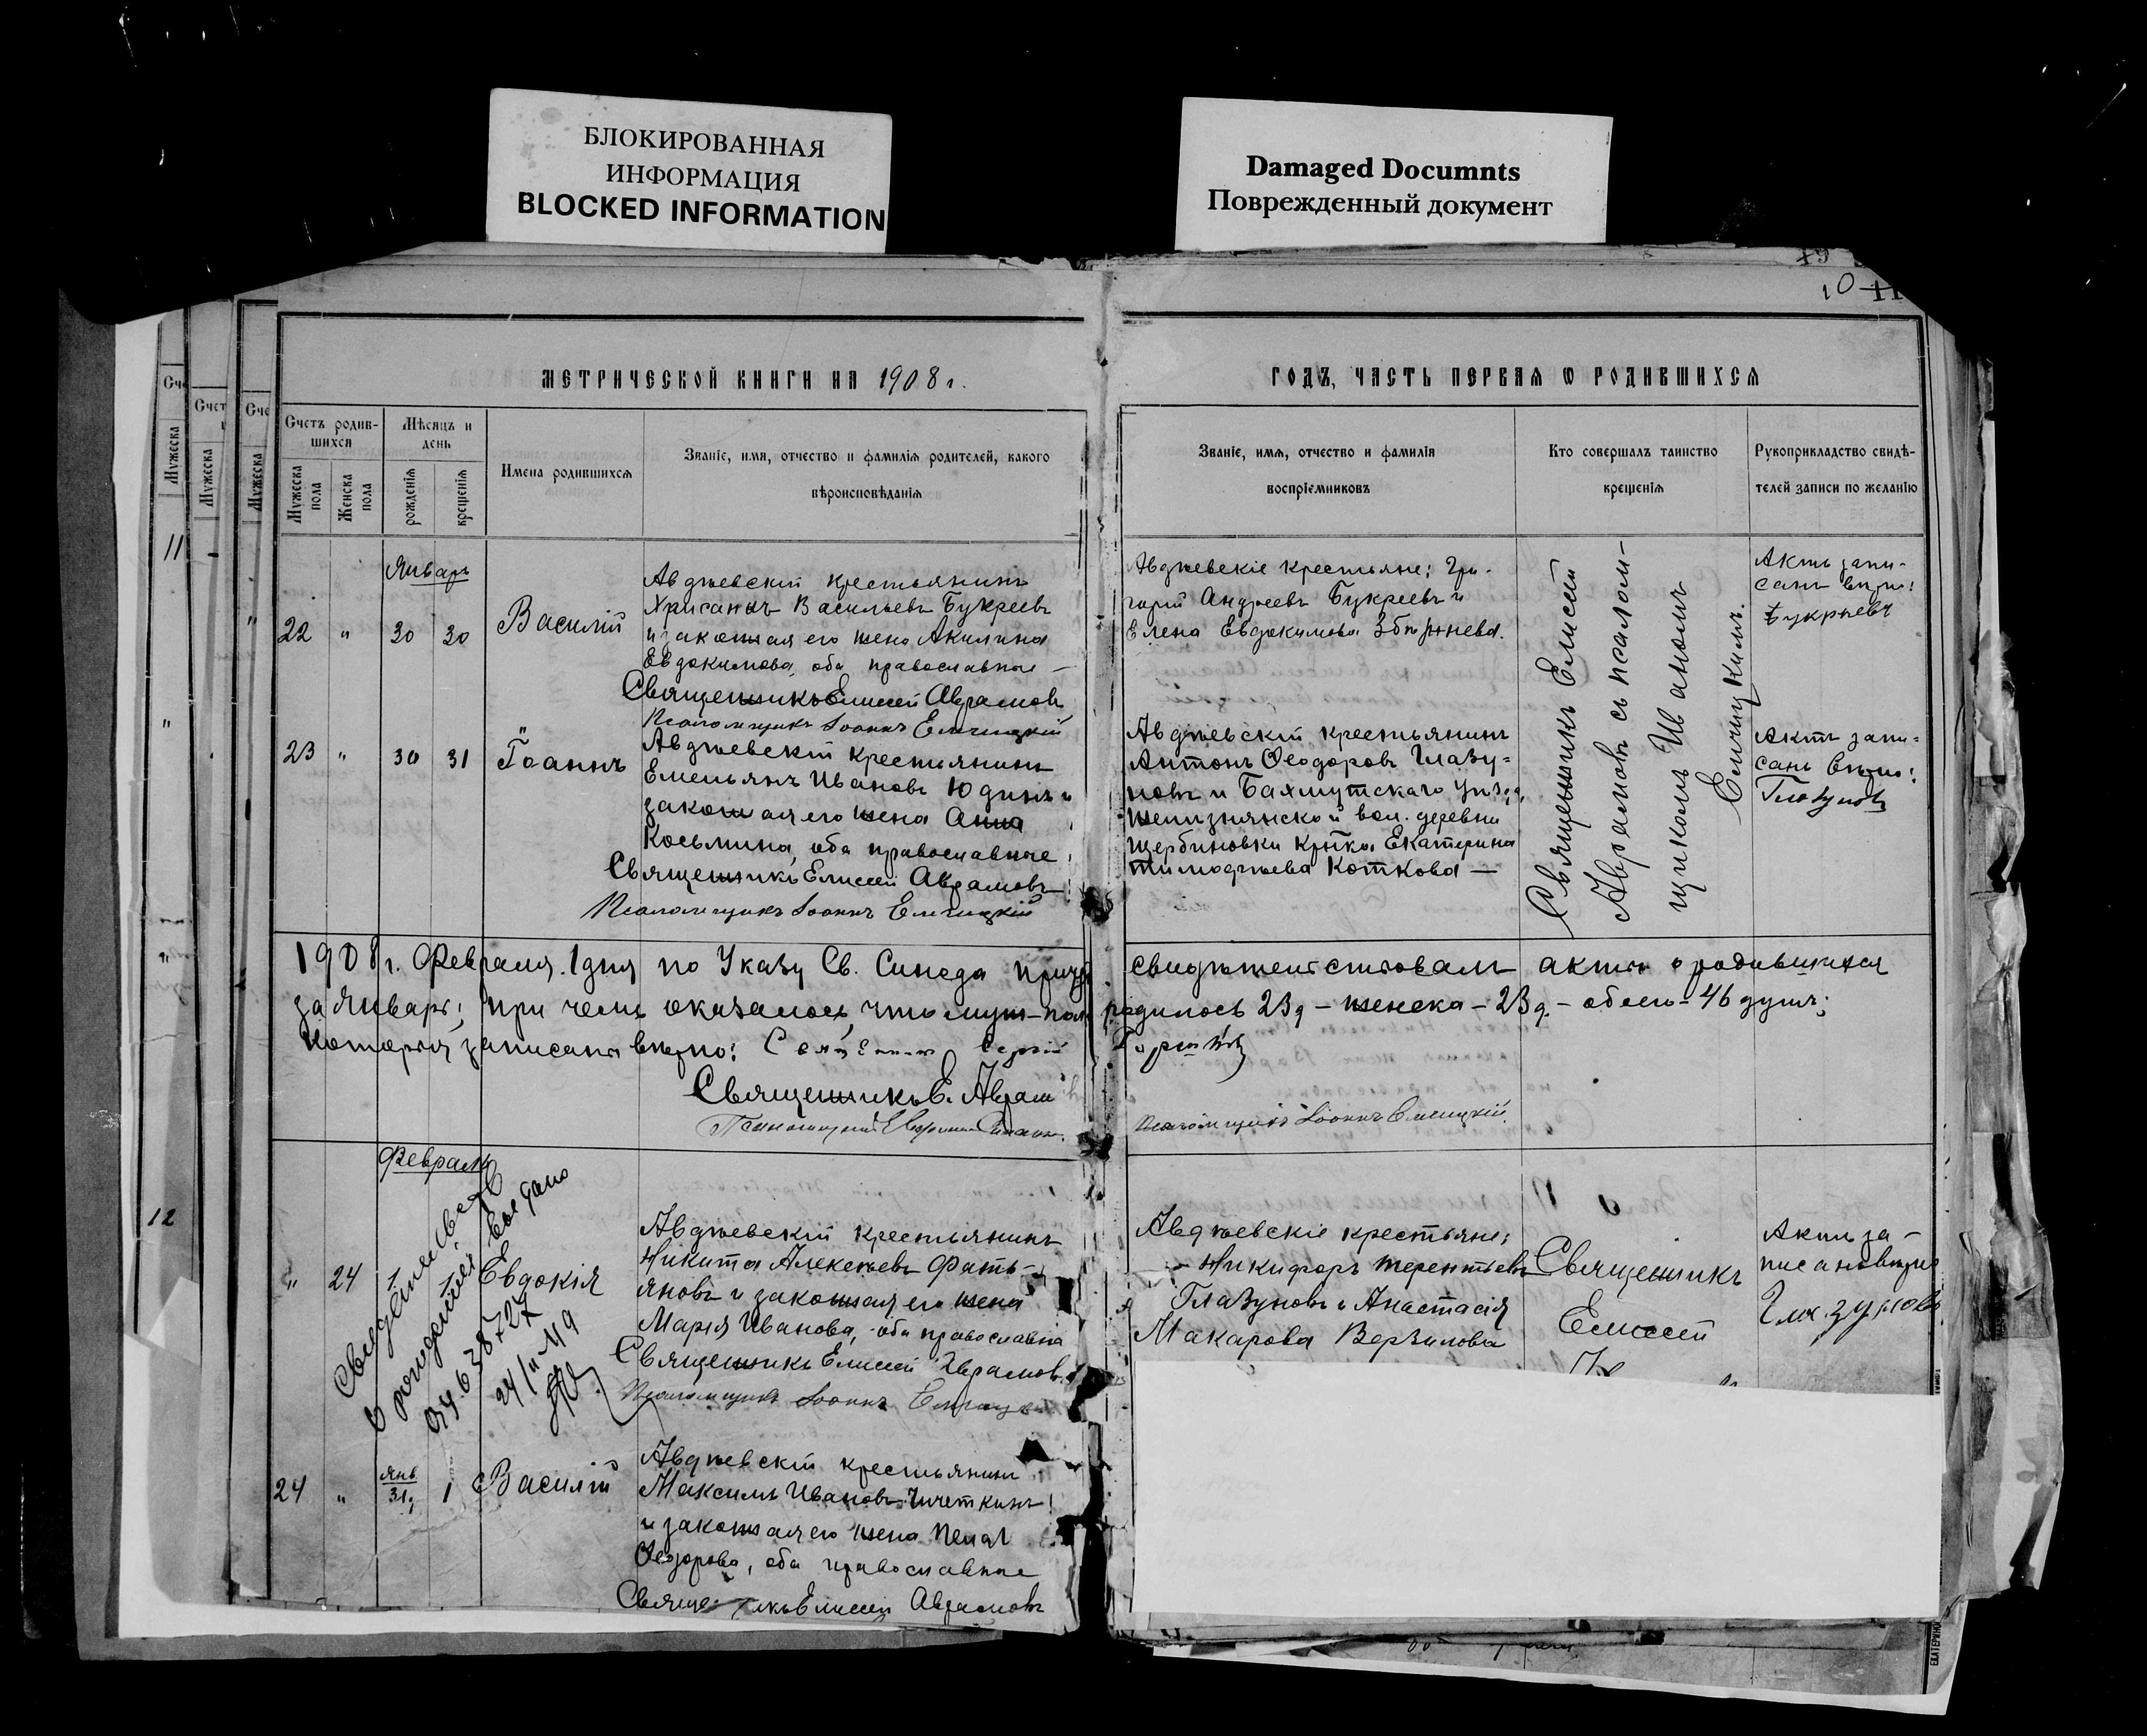 БЛОКИРОВАННАЯ
ИНФОРМАЦИЯ
BLOCKED INFORMATION
Damaged Documnts
Поврежденный документ
19
10 11
МЕТРИЧЕСКОЙ КНИГИ НА 1908 г.
Счетъ родив-
шихся
Мѣсяцъ и
день
Мужеска
пола
Женска
пола
рожденія
крещенія
Имена родившихся
Званіе, имя, отчество и фамилія родителей, какого
вѣроисповѣданія
Январь
22 " 30 30 Василій
Авдѣевскій крестьянинъ
Хрисанѳъ Васильевъ Букреевъ
и законная его жена Акилина
Евдокимова, оба православные —
Священникъ Елисей Аврамовъ
Псаломщикъ Іоаннъ Елчицкій
23 " 30 31 Іоаннъ
Авдѣевскій крестьянинъ
Емельянъ Ивановъ Юдинъ и
законная его жена Анна
Косьмина, оба православные
Священникъ Елисей Аврамовъ
Псаломщикъ Іоаннъ Елчицкій
ГОДЪ, ЧАСТЬ ПЕРВАЯ Ѡ РОДИВШИХСЯ
Званіе, имя, отчество и фамилія
воспріемниковъ
Кто совершалъ таинство
крещенія
Рукоприкладство свидѣ-
телей записи по желанію
Авдѣевскіе крестьяне: Гри-
горій Андреевъ Букреевъ и
Елена Евдокимова
Авдѣевскій крестьянинъ
Антонъ Ѳеодоровъ Глазу-
новъ и Бахмутскаго уѣзда,
Желѣзнянской вол. деревни
Щербиновки кр-ка Екатерина
Тимоѳѣева Коткова —
Священникъ Елисей
Аврамовъ съ псалом-
щикомъ Иваномъ
Елчицкимъ.
Актъ запи-
санъ вѣрно:
Букрѣевъ
Актъ запи-
санъ вѣрно:
Глазуновъ
1908 г. Февраля 1 дня по Указу Св. Синода причтъ свидѣтельствовалъ акты о родившихся
за Январь; при чемъ оказалось, что муж-пола родилось 23 д — женска — 23 д. — обоего — 46 душъ;
которыя записаны вѣрно: Священникъ Сергій
Священникъ Е. Аврамовъ
Псаломщикъ Іоаннъ Елчицкій
Февраль
" 24 1 1 Евдокія
Свидѣтельство
о рожденіи выдано
24/II
Авдѣевскій крестьянинъ
Никита Алексѣевъ Фать-
яновъ и законная его жена
Марія Иванова, оба православна
Священникъ Елисей Аврамов
Псаломщикъ Іоаннъ
Авдѣевскіе крестьяне:
Никифоръ Терентьевъ
Глазуновъ и Анастасія
Макарова Верзилова
Священникъ
Елисей
Актъ за-
писанъ вѣрно
Глазуновъ
24 " Янв 31 1 Василій
Авдѣевскій крестьянин
Максимъ Ивановъ
и законная его жена
Ѳеодорова, оба православные
Елисей Аврамовъ
11
12